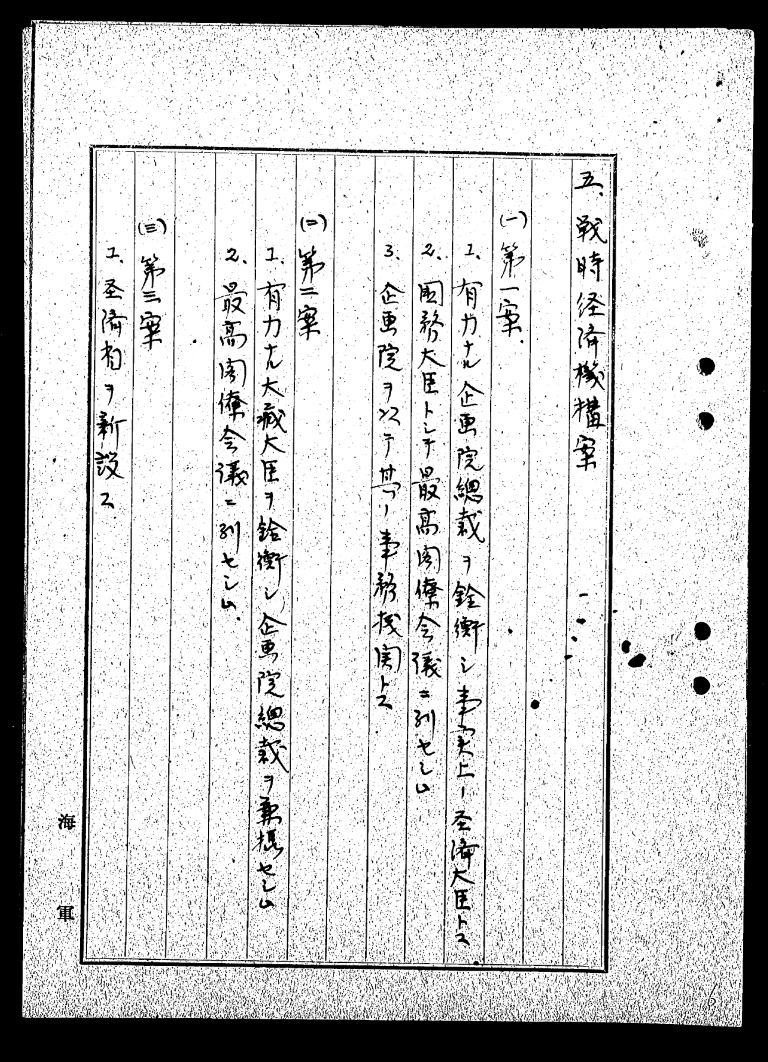 五、戦時経済機構案
(一) 第一案.
1. 有力ナル企画院總裁ヲ銓衡シ事実上ノ圣済大臣トス
2. 國務大臣トシテ最高閣僚会議ニ列セシム
3. 企画院ヲシテ其ノ事務機関トス
(二) 第二案
1. 有力ナル大藏大臣ヲ銓衡シ企画院總裁ヲ兼摂セシム
2. 最高閣僚会議ニ列セシム.
(三) 第三案
1. 圣済相ヲ新設ス
海軍
6